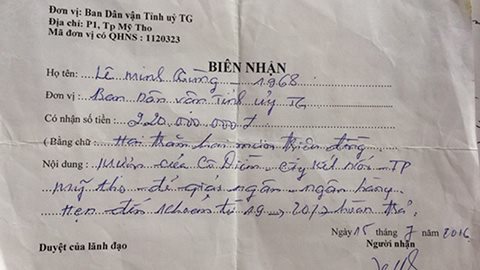 Đơn vị: Ban Dân vận Tỉnh uỷ TG
Địa chỉ: P1, Tp Mỹ Tho
Mã đơn vị có QHNS : 1120323
BIÊN NHẬN
Họ tên: Lê Minh Hùng - 1968
Đơn vị: Ban Dân vận Tỉnh ủy TG
Có nhận số tiền: 220.000.000 đ
( Bằng chữ: Hai trăm hai mươi triệu đồng
Nội dung: Mượn của Cô Diễm kết nối - TP
Mỹ Tho - để giải ngân - ngân hàng
Hẹn đến khoản từ 19 - 2017 hoàn trả.
Ngày 15 tháng 7 năm 2016
Duyệt của lãnh đạo
Người nhận